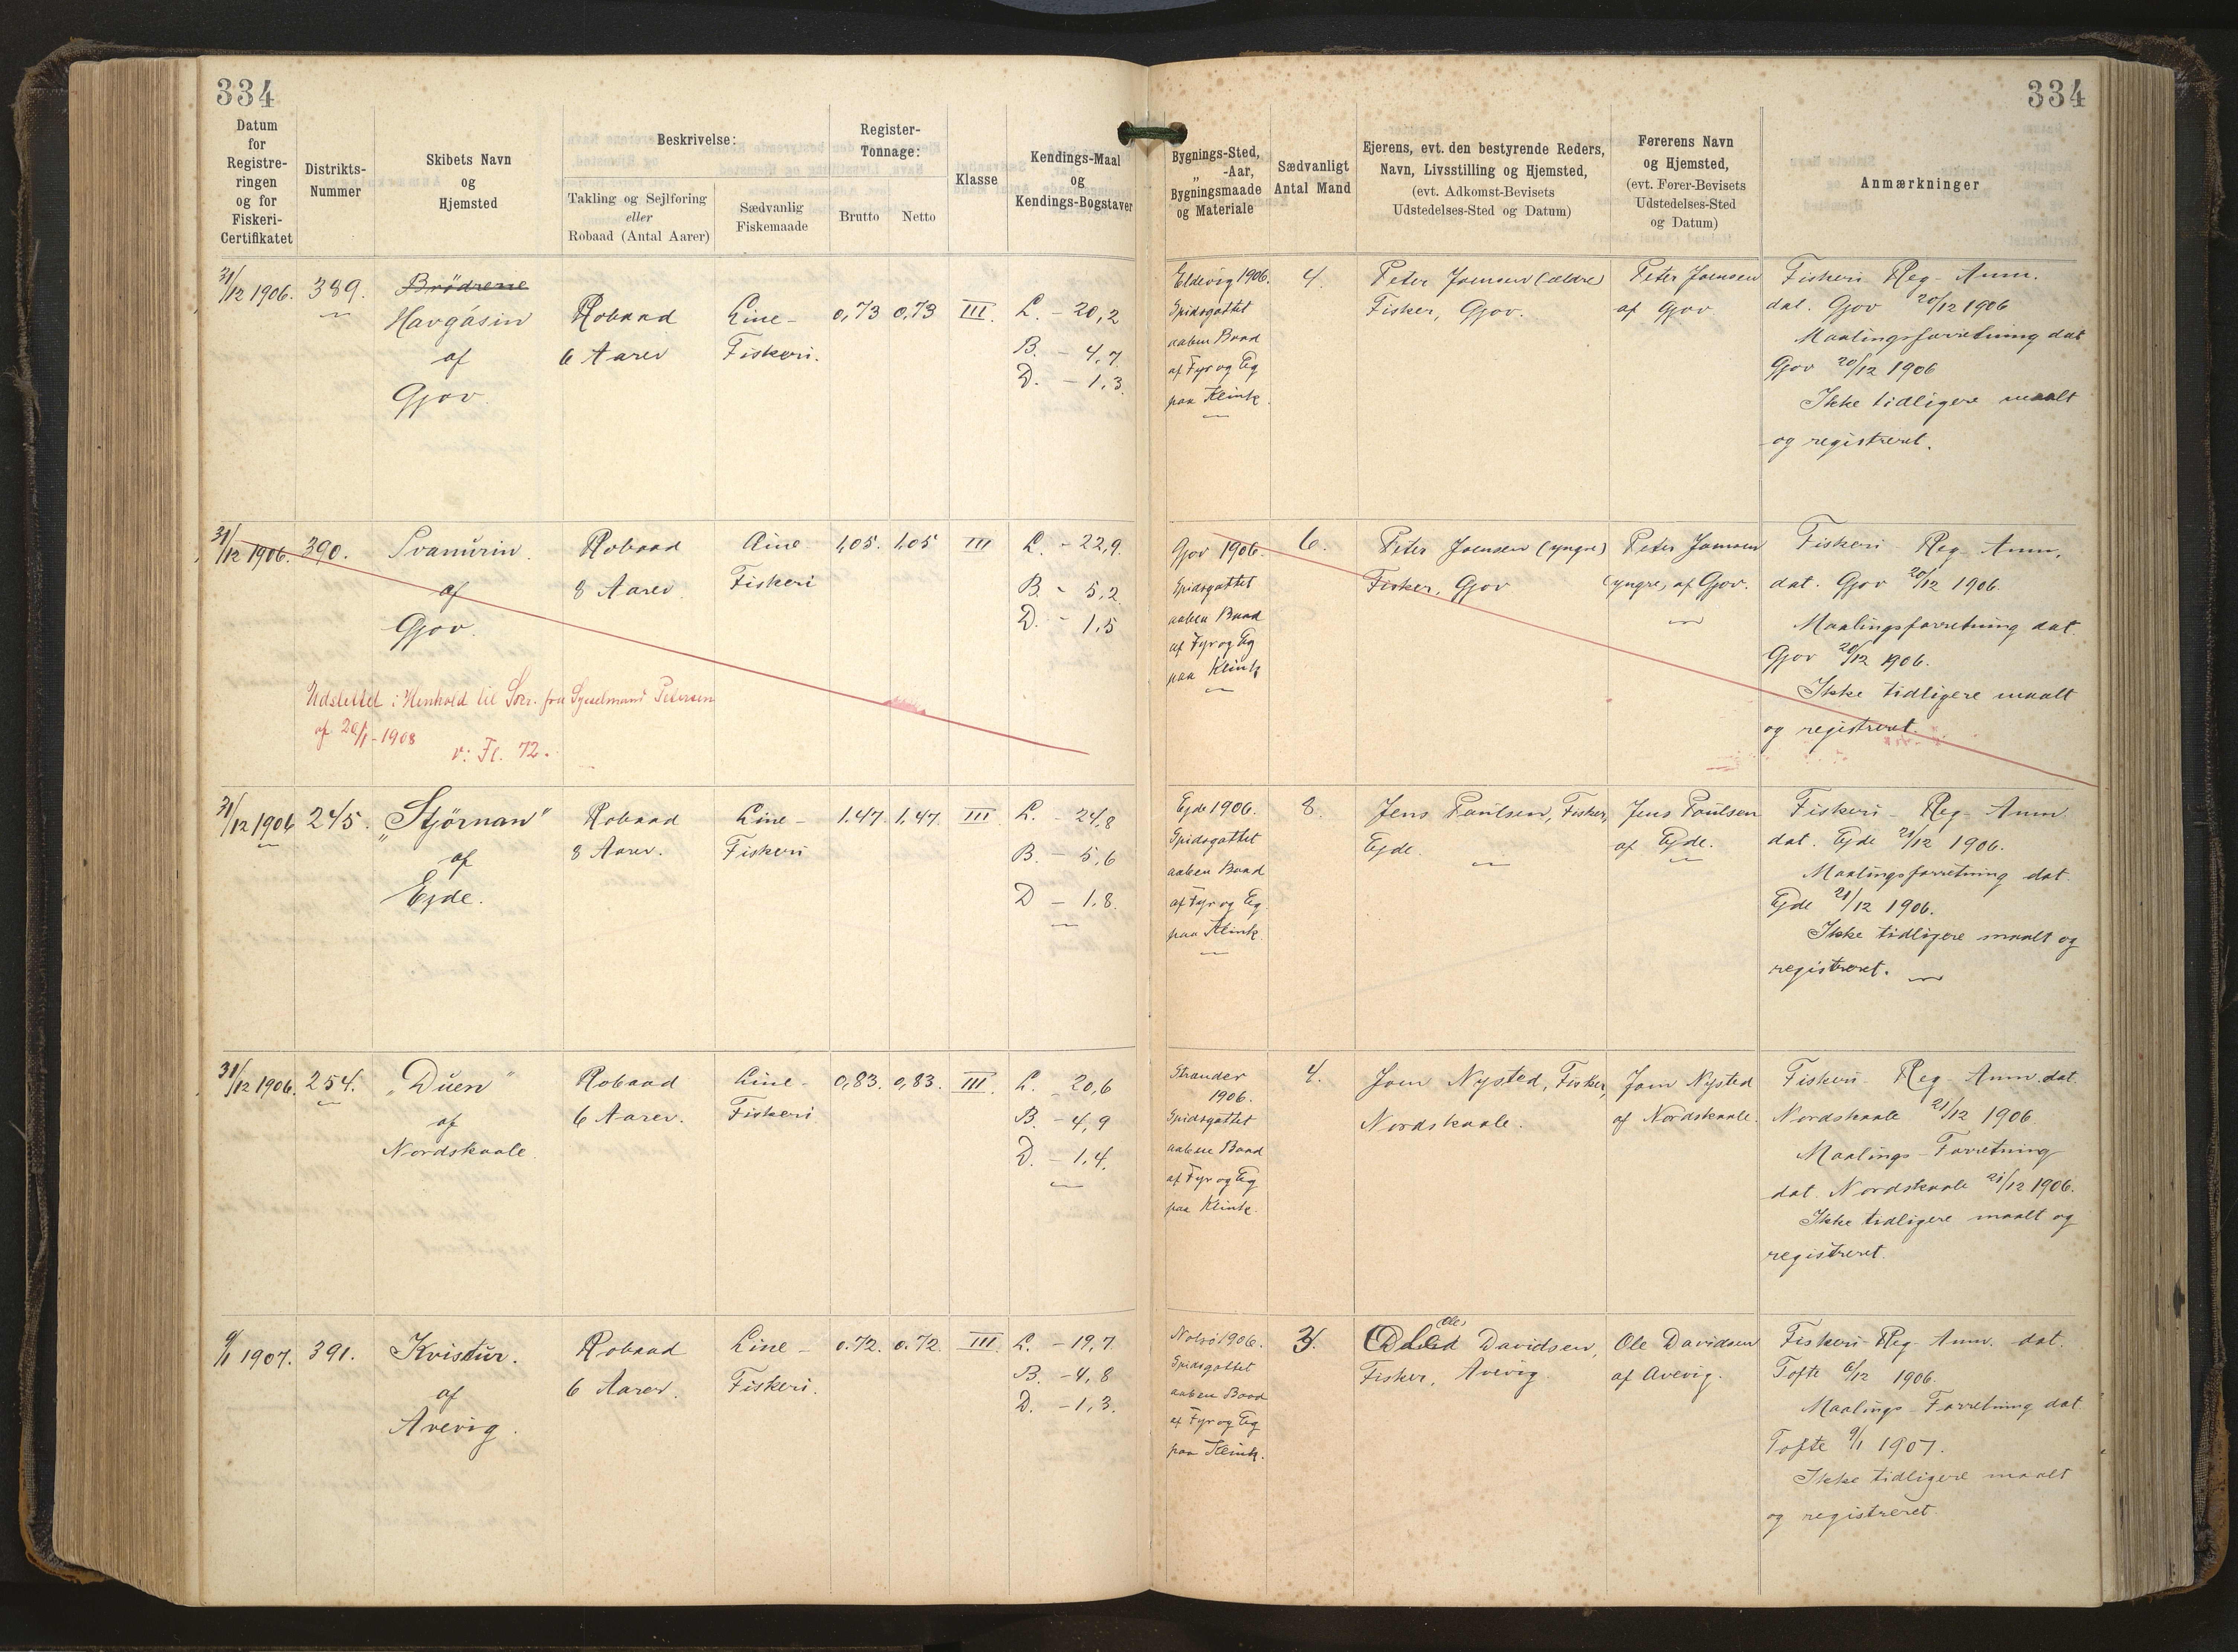 334
334
Datum
for
Registre-
ringen
og for
Fiskeri-
Certifikatet
Distrikts-
Nummer
Skibets Navn
og
Hjemsted
Beskrivelse:
Takling og Sejlføring
eller
Robaad (Antal Aarer)
Sædvanlig
Fiskemaade
Register-
Tonnage:
Brutto
Netto
Klasse
Kendings-Maal
og
Kendings-Bogstaver
Bygnings-Sted,
„ -Aar,
Bygningsmaade
og Materiale
Sædvanligt
Antal Mand
Ejerens, evt. den bestyrende Reders,
Navn, Livsstilling og Hjemsted,
(evt. Adkomst-Bevisets
Udstedelses-Sted og Datum)
Førerens Navn
og Hjemsted,
(evt. Fører-Bevisets
Udstedelses-Sted
og Datum)
Anmærkninger
31/12 1906.
389.
Brödrene
Havgásin
af
Gjov.
Robaad
6 Aarer
Line-
Fiskeri.
0,73
0,73
III.
L. - 20,2
B. - 4,7
D. - 1,3.
Eldevig 1906.
Spidsgattet
aaben Baad
af Fyr og Eg
paa Klink.
4.
Peter Joensen (ældre)
Fisker, Gjov.
Peter Joensen
af Gjov
Fiskeri-Reg-Anm.
dat. Gjov 20/12 1906
Maalingsforretning dat
Gjov 20/12 1906
Ikke tidligere maalt
og registreret.
31/12 1906.
390.
Svanurin.
af
Gjov.
Robaad
8 Aarer.
Line
Fiskeri
1,05.
1,05
III
L. - 22,9.
B. - 5,2.
D. - 1,5
Udslettet i Henhold til Skr. fra Sysselmand Petersen
af 20/1-1908
v: Fl. 72.
Gjov 1906.
Spidsgattet
aaben Baad
af Fyr og Eg
paa Klink
6.
Peter Joensen (yngre)
Fisker, Gjov
Peter Joensen
(yngre) af Gjov.
Fiskeri-Reg-Anm.
dat. Gjov 20/12 1906.
Maalingsforretning dat.
Gjov 20/12 1906.
Ikke tidligere maalt
og registreret.
31/12 1906
245.
„Stjörnan”
af
Ejde.
Robaad
8 Aarer.
Line-
Fiskeri
1.47.
1,47.
III.
L. - 24,8
B. - 5,6
D - 1,8.
Ejde 1906.
Spidsgattet
aaben Baad
af Fyr og Eg.
paa Klink.
8.
Jens Poulsen, Fisker,
Ejde.
Jens Poulsen
af Ejde.
Fiskeri-Reg-Anm
dat. Ejde 21/12 1906.
Maalingsforretning dat.
Ejde 21/12 1906.
Ikke tidligere maalt og
registreret.
31/12 1906.
254.
„Duen”
af
Nordskaale.
Robaad
6 Aarer.
Line-
Fiskeri
0,83.
0,83.
III.
L. 20,6
B. - 4,9
D. - 1,4.
Strander
1906.
Spidsgattet
aaben Baad
af Fyr og Eg
paa Klink.
4.
Joen Nysted, Fisker,
Nordskaale.
Joen Nysted
af Nordskaale.
Fiskeri-Reg-Anm. dat.
Nordskaale 21/12 1906.
Maalings-Forretning
dat. Nordskaale 21/12 1906.
Ikke tidligere maalt og
registreret.
9/1 1907.
391.
Kvistur.
af
Avevig.
Robaad
6 Aarer.
Line-
Fiskeri.
0.72.
0.72.
III.
L. - 19,7
B. - 4,8
D. - 1,3.
Nolsö 1906.
Spidsgattet
aaben Baad
af Fyr og Eg
paa Klink.
3.
Ole
Davidsen,
Fisker, Avevig.
Ole Davidsen
af Avevig.
Fiskeri-Reg-Anm. dat.
Tofte 6/12 1906.
Maalings-Forretning dat.
Tofte 9/1 1907.
Ikke tidligere maalt
og registreret